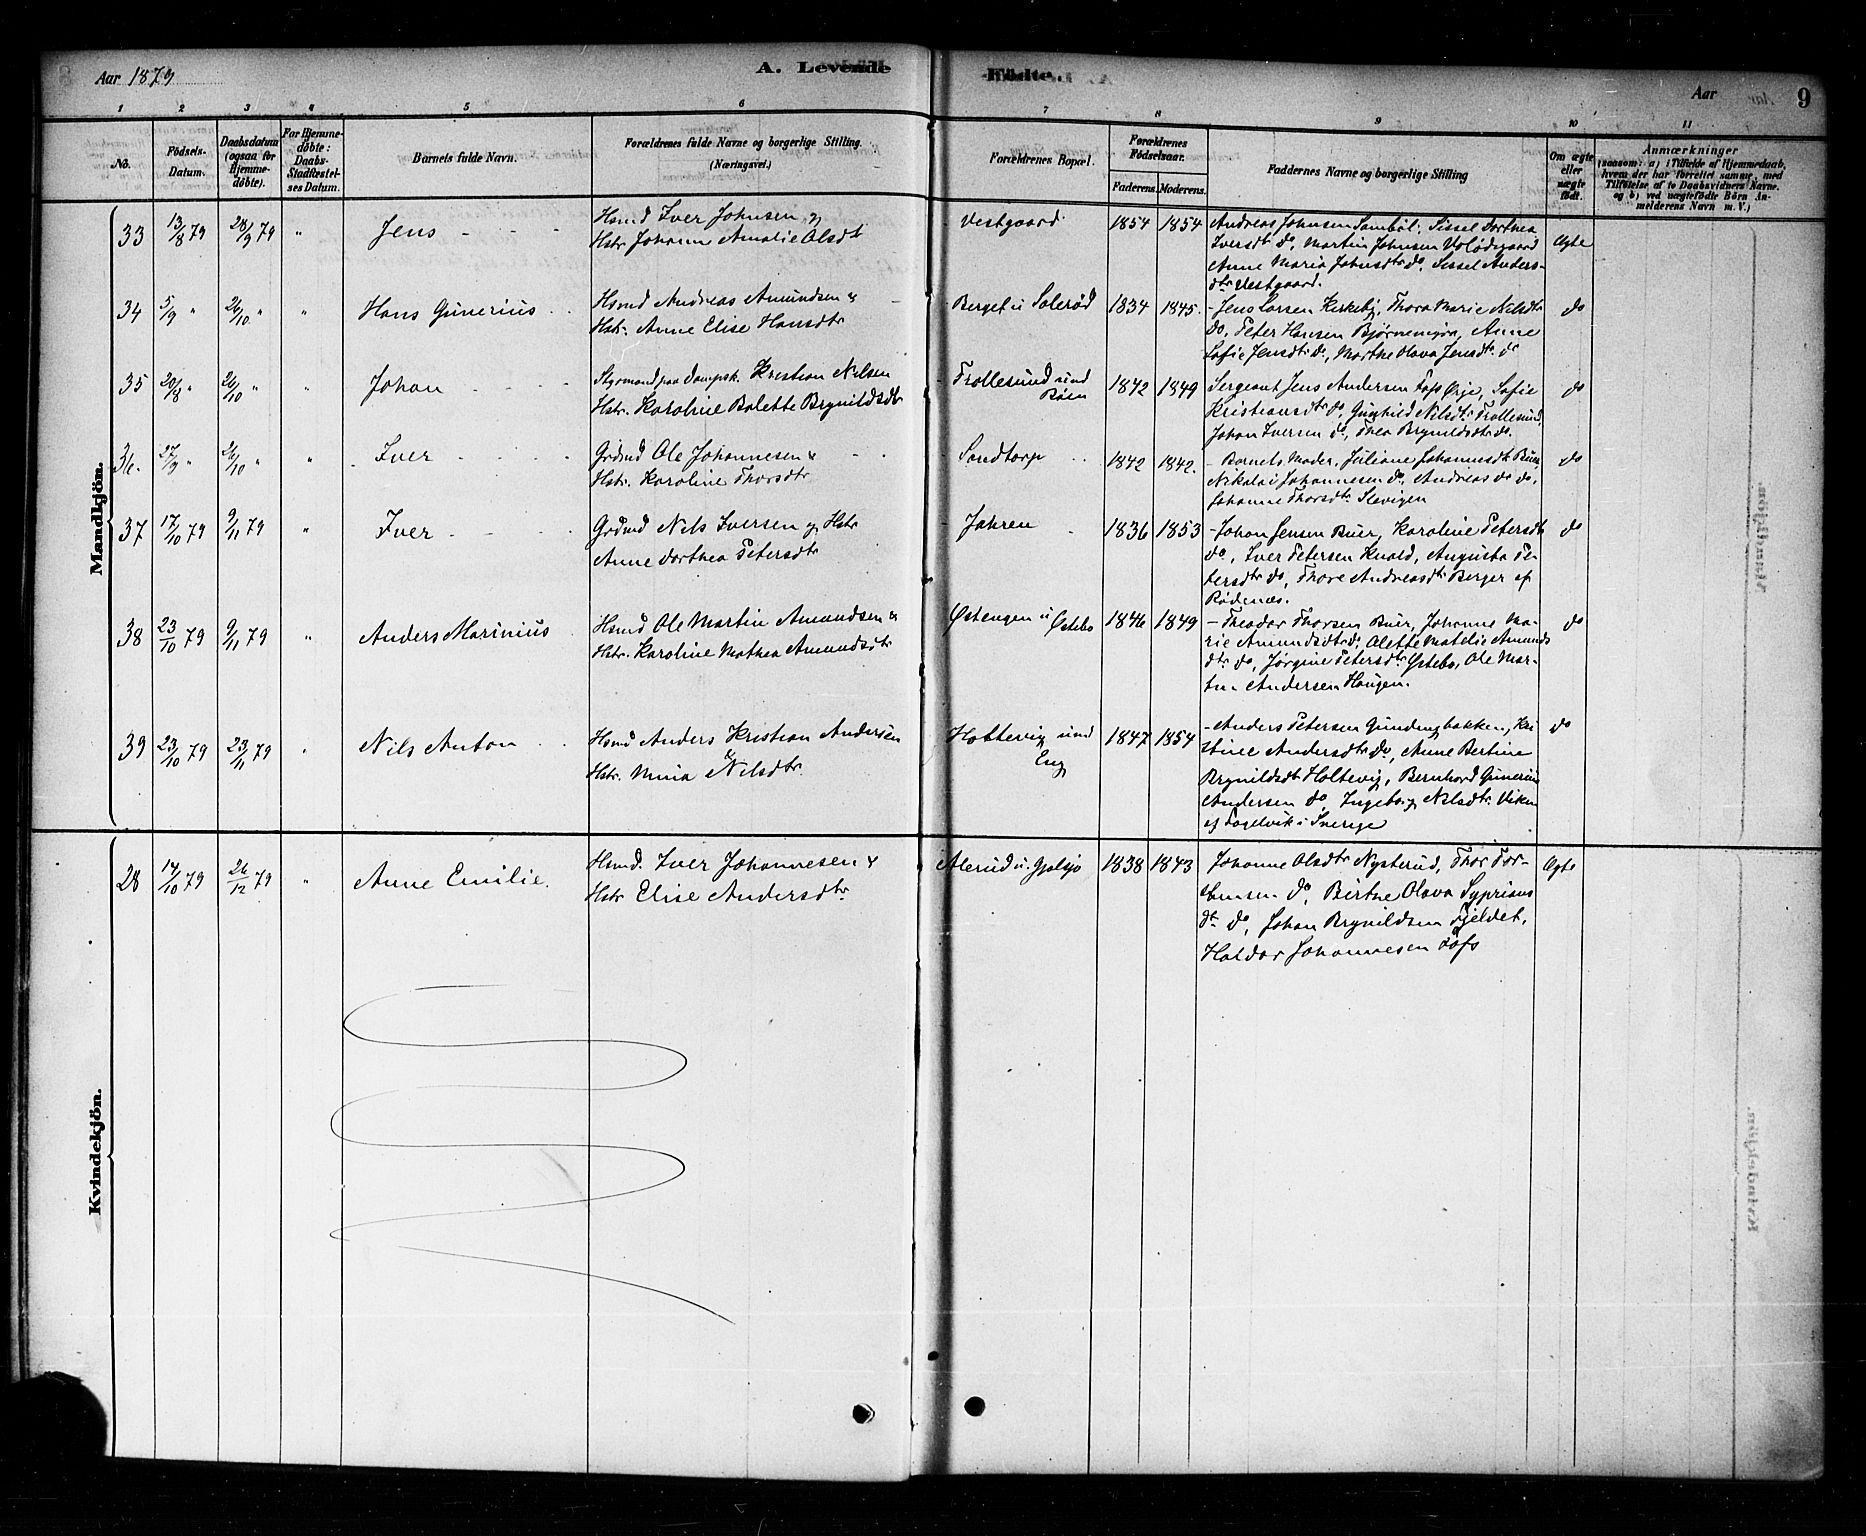 Aar 1879
A. Levende Födte.
Aar
9
1 2 3 4 5 6 7 8 9 10 11
No.
Födsels-Datum.
Daabsdatum (ogsaa for Hjemme-döbte).
For Hjemme-döbte: Daabs-Stadfæstel-ses Datum.
Barnets fulde Navn.
Forældrenes fulde Navne og borgerlige Stilling. (Næringsvei.)
Forældrenes Bopæl.
Forældrenes Födselsaar.
Faderens. Moderens.
Faddernes Navne og borgerlige Stilling
Om ægte eller uægte födt.
Anmærkninger
(saasom: a) i Tilfælde af Hjemmedaab, hvem der har forrettet samme, med Tilföielse af to Daabsvidners Navne, og b) ved uægtefödte Börn An-melderens Navn m. V.)
Mandkjön.
33 13/8 79 28/9 79 " Jens
Hsmd Iver Johnsen og
Hstr Johanne Amalie Olsdt
Vestgaard 1854 1854
Andreas Johnsen Sambøl, Sissel Dorthea
Iversdtr do, Martin Johnsen
Anne Maria Johnsdtr do, Sissel Anders-
dtr Vestgaard.
Ægte
34 5/9 " 26/10 " " Hans Gunerius
Hsmd Andreas Amundsen &
Hstr. Anne Elise Hansdtr
Berget u Solerød 1834 1845.
- Jens Larsen Kirkeby, Thora Marie Nilsdtr
do, Peter Hansen Bjørnemyra, Anne
Sofie Jensdtr do, Marthe Olava Jensdtr do
do
35 20/8 " 26/10 " " Johan
Styrmand paa Dampsk. Kristian Nilsen
Hstr. Karoline Bolette Brynildsdtr
Trollesund und
1842 1849
Sergeant Jens Andersen Fofs Ørje, Sofie
Kristiansdtr do, Gunhild Nilsdtr Trollesund,
Johan Iversen do, Thea Brynildsdtr do.
do
36. 27/9 " 26/10 " " Iver
Grdmd Ole Johannesen &
Hstr. Karoline Thorsdtr
Sandtorp 1842 1842.
- Barnets Moder, Juliane Johannesdt Buer,
Nikolai Johannesen do, Andreas do do,
Johanne Thorsdtr Slevigen
do
37 17/10 79 9/11 79 " Iver
Grdmd Nils Iversen og Hstr
Anne Dorthea Petersdtr
Jahren 1836 1853
- Johan Jensen Buer, Karoline Petersdtr
do, Iver Petersen Knold, Augusta Pe-
tersdtr do, Thore Andreasdtr Berger af
Rødenæs.
do
38 23/10 79 9/11 79 " Anders Marinius
Hsmd Ole Martin Amundsen &
Hstr. Karoline Mathea Amundsdtr
Østengen u Østebø 1846 1849
- Theodor Thorsen Buer, Johanne Ma-
rie Amundsdtr do, Olette Matelie Amunds
dtr do, Jørgine Petersdtr Østebø, Ole Mar-
tin Andersen Haugen.
do
39 23/10 79 23/11 79 " Nils Anton
Hsmd Anders Kristian Andersen
& Hstr. Mina Nilsdtr.
Holtevig und Eng 1847 1854
- Anders Petersen Gundengbakken, Kri
stine Andersdtr do, Anne Bertine
Brynildsdt Holtevig, Bernhard Gunerius
Andersen do, Ingeborg Nilsdtr Viken
af Fogelvik i Sverige
do
Kvindekjön.
28 14/10 79 26/12 79 " Anne Emilie.
Hsmd. Iver Johannesen &
Hstr Elise Andersdtr.
Alerud u. Gjølsjø 1838 1843
Johanne Olsdtr Nysterud, Thor Tor-
stensen do, Birthe Olava Syprians
dtr do, Johan Brynildsen Fjeldet,
Haldor Johannesen Fofs
Ægte